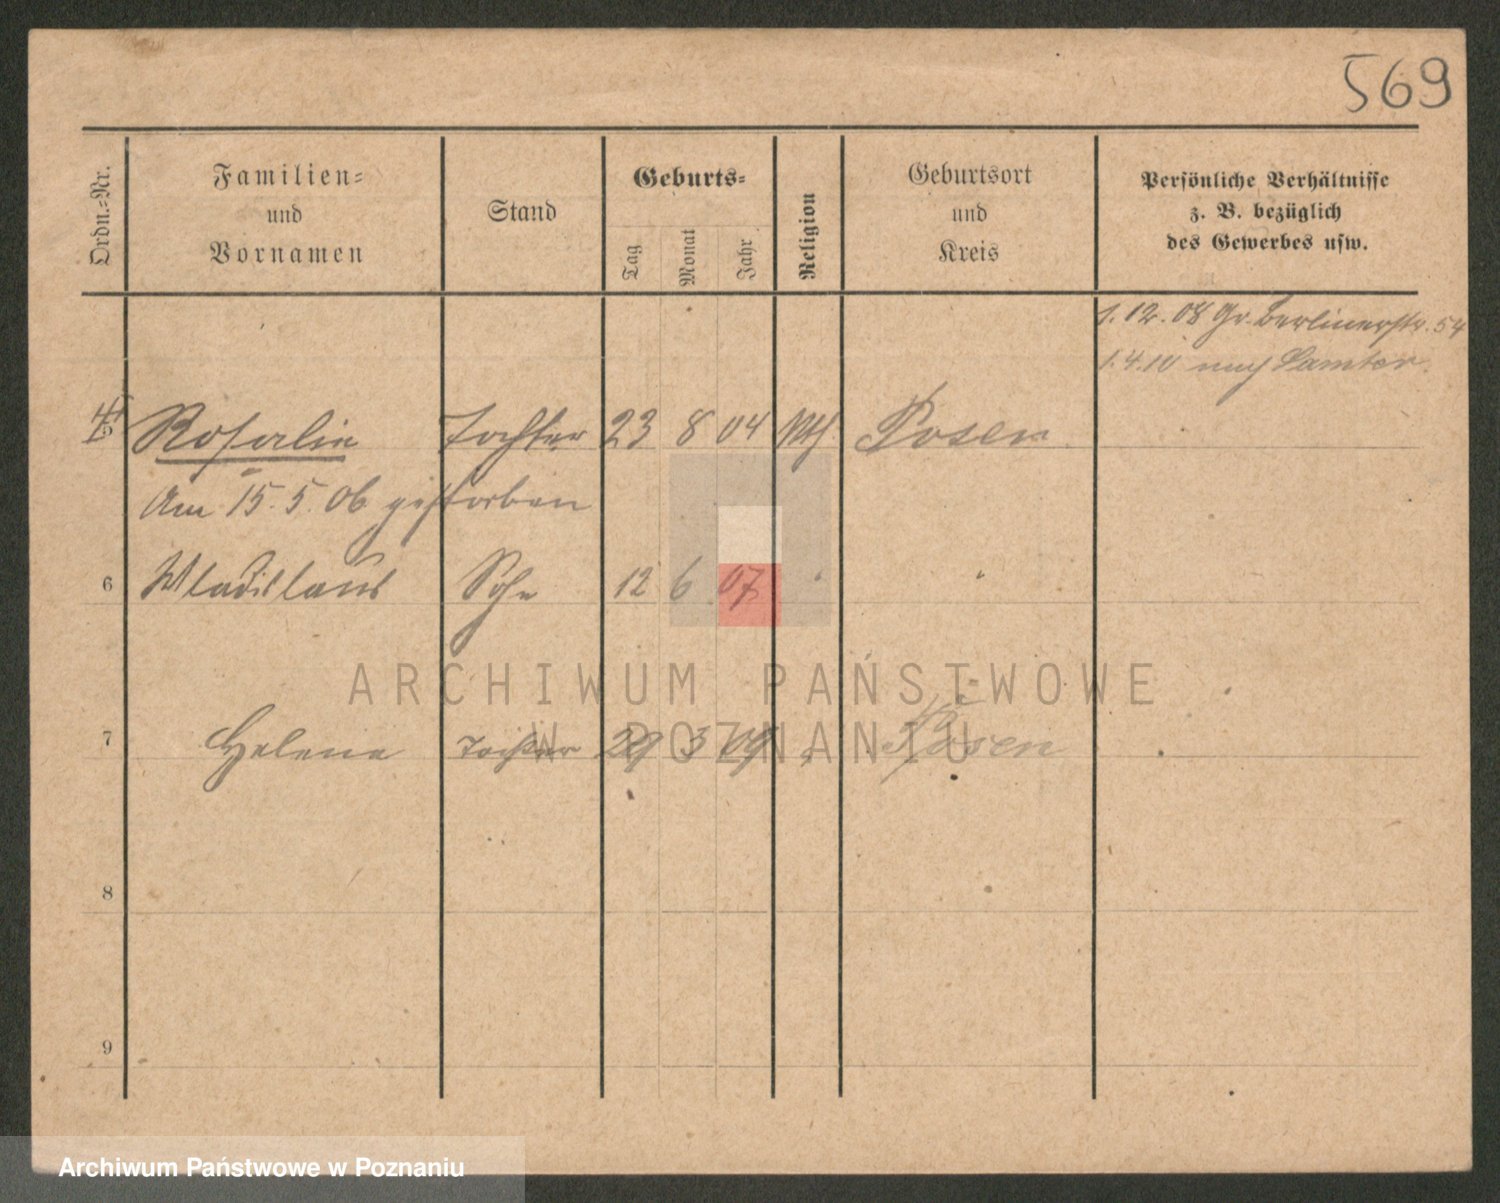 569
Ordn.=Nr.
Familien=
und
Vornamen
Stand
Geburts=
Tag
Monat
Jahr
Religion
Geburtsort
und
Kreis
Persönliche Verhältnisse
z. B. bezüglich
des Gewerbes usw.
1.12.08 Gr. Berlinerstr. 54
1.4.10 nach Samter.
5 Rosalie Tochter 23 8 04 kth. Posen
Am 15.5.06 gestorben
6 Wladislaus Sohn 12 6 07 " "
7 Helene Tochter 29 3 09 " Posen
8
9
ARCHIWUM PAŃSTWOWE
W POZNANIU
Archiwum Państwowe w Poznaniu